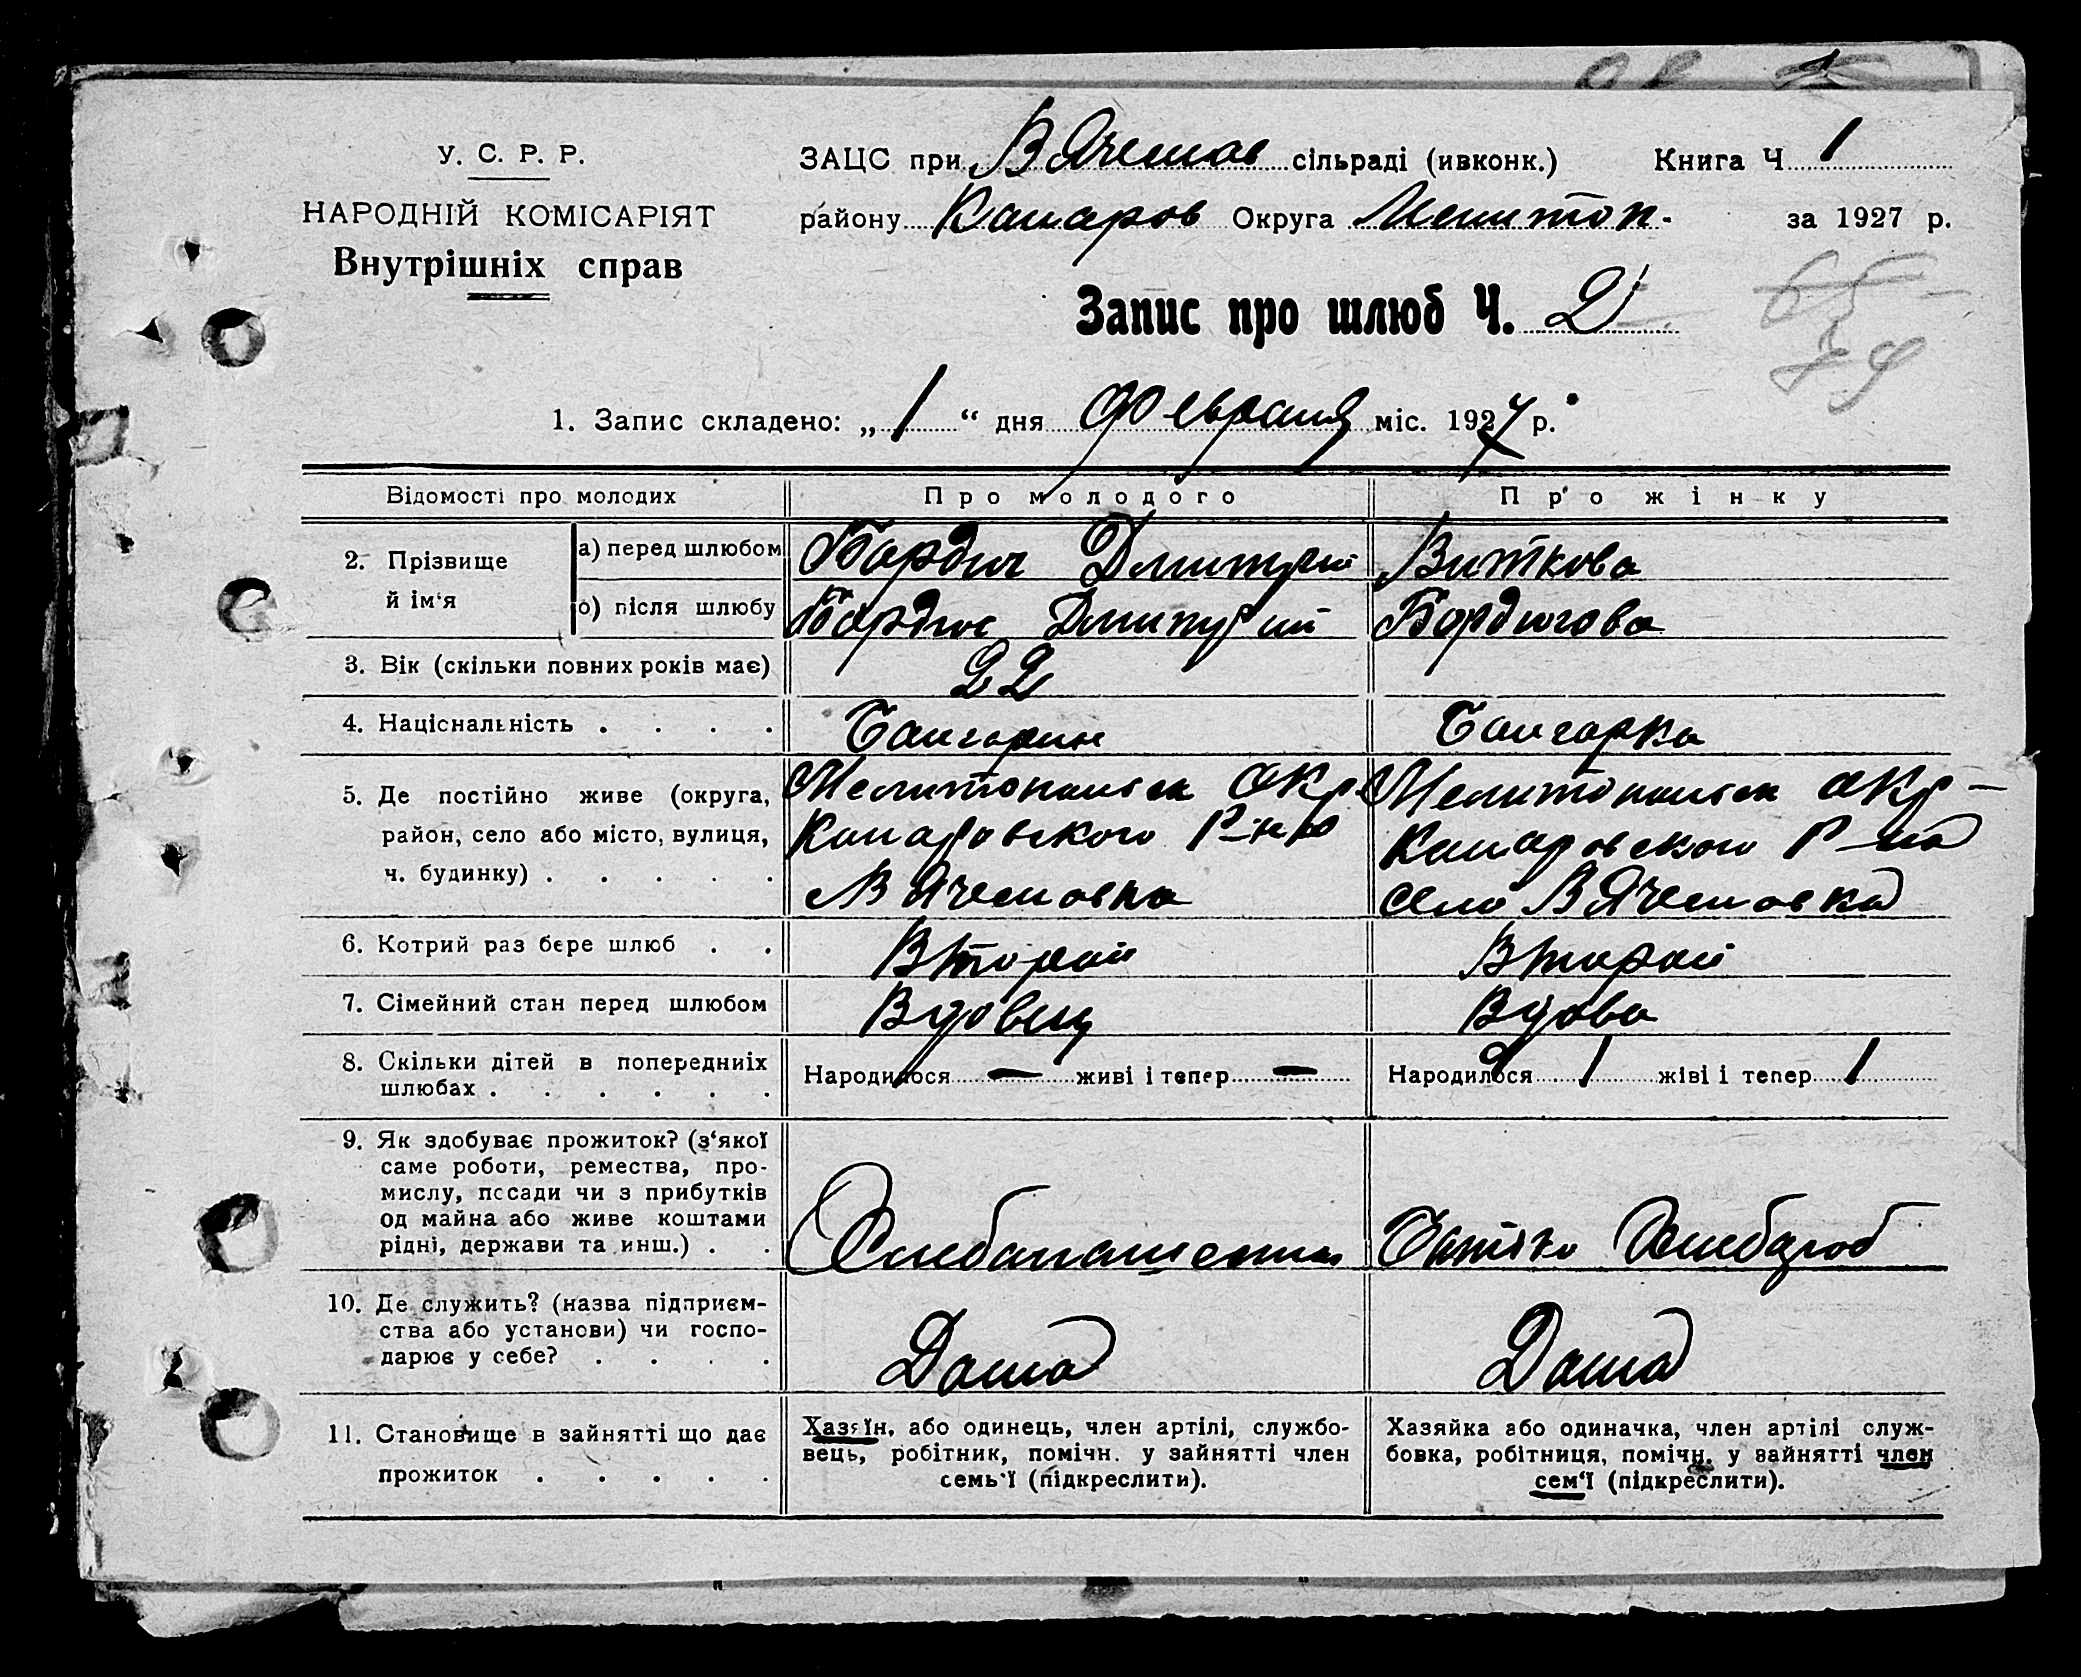 У. С. Р. Р.
НАРОДНІЙ КОМІСАРІЯТ
Внутрішніх справ
ЗАЦС при В Ячеслав сільраді (ивконк.) Книга Ч 1
району Коларов Округа Мелитоп. за 1927 р.
Запис про шлюб Ч. 2
1. Запис складено: „ 1 “ дня Февраля міс. 1927 р.
Відомості про молодих Про молодого Про жінку
2. Прізвище й ім‘я
а) перед шлюбом Дмитрий Виткова
б) після шлюбу Дмитрий
3. Вік (скільки повних років має) 22
4. Національність . . . . Болгарин Болгарка
5. Де постійно живе (округа,
район, село або місто, вулиця,
ч. будинку) . . . . .
Мелитопольск Окр.
Коларовского Р-на
В Ячеславка
Мелитопольск Окр-
Коларовского Р-на
село В Ячеславка
6. Котрий раз бере шлюб . . Второй Второй
7. Сімейний стан перед шлюбом Вдовец Вдова
8. Скільки дітей в попередниіх
шлюбах . . . . . .
Народилося — живі і тепер —
Народилося 1 жіві і тепер 1
9. Як здобуває прожиток? (з‘якої
саме роботи, ремества, про-
мислу, посади чи з прибутків
од майна або живе коштами
рідні, держави та инш.) . .
10. Де служить? (назва підприєм-
ства або установи) чи госпо-
дарює у себе? . . . .
Дома Дома
11. Становище в зайнятті що дає
прожиток . . . . .
Хазяїн, або одинець, член артілі, службо-
вець, робітник, помічн. у зайнятті член
семь‘ї (підкреслити).
Хазяйка або одиначка, член артілі служ-
бовка, робітниця, помічн. у зайнятті член
сем‘ї (підкреслити).